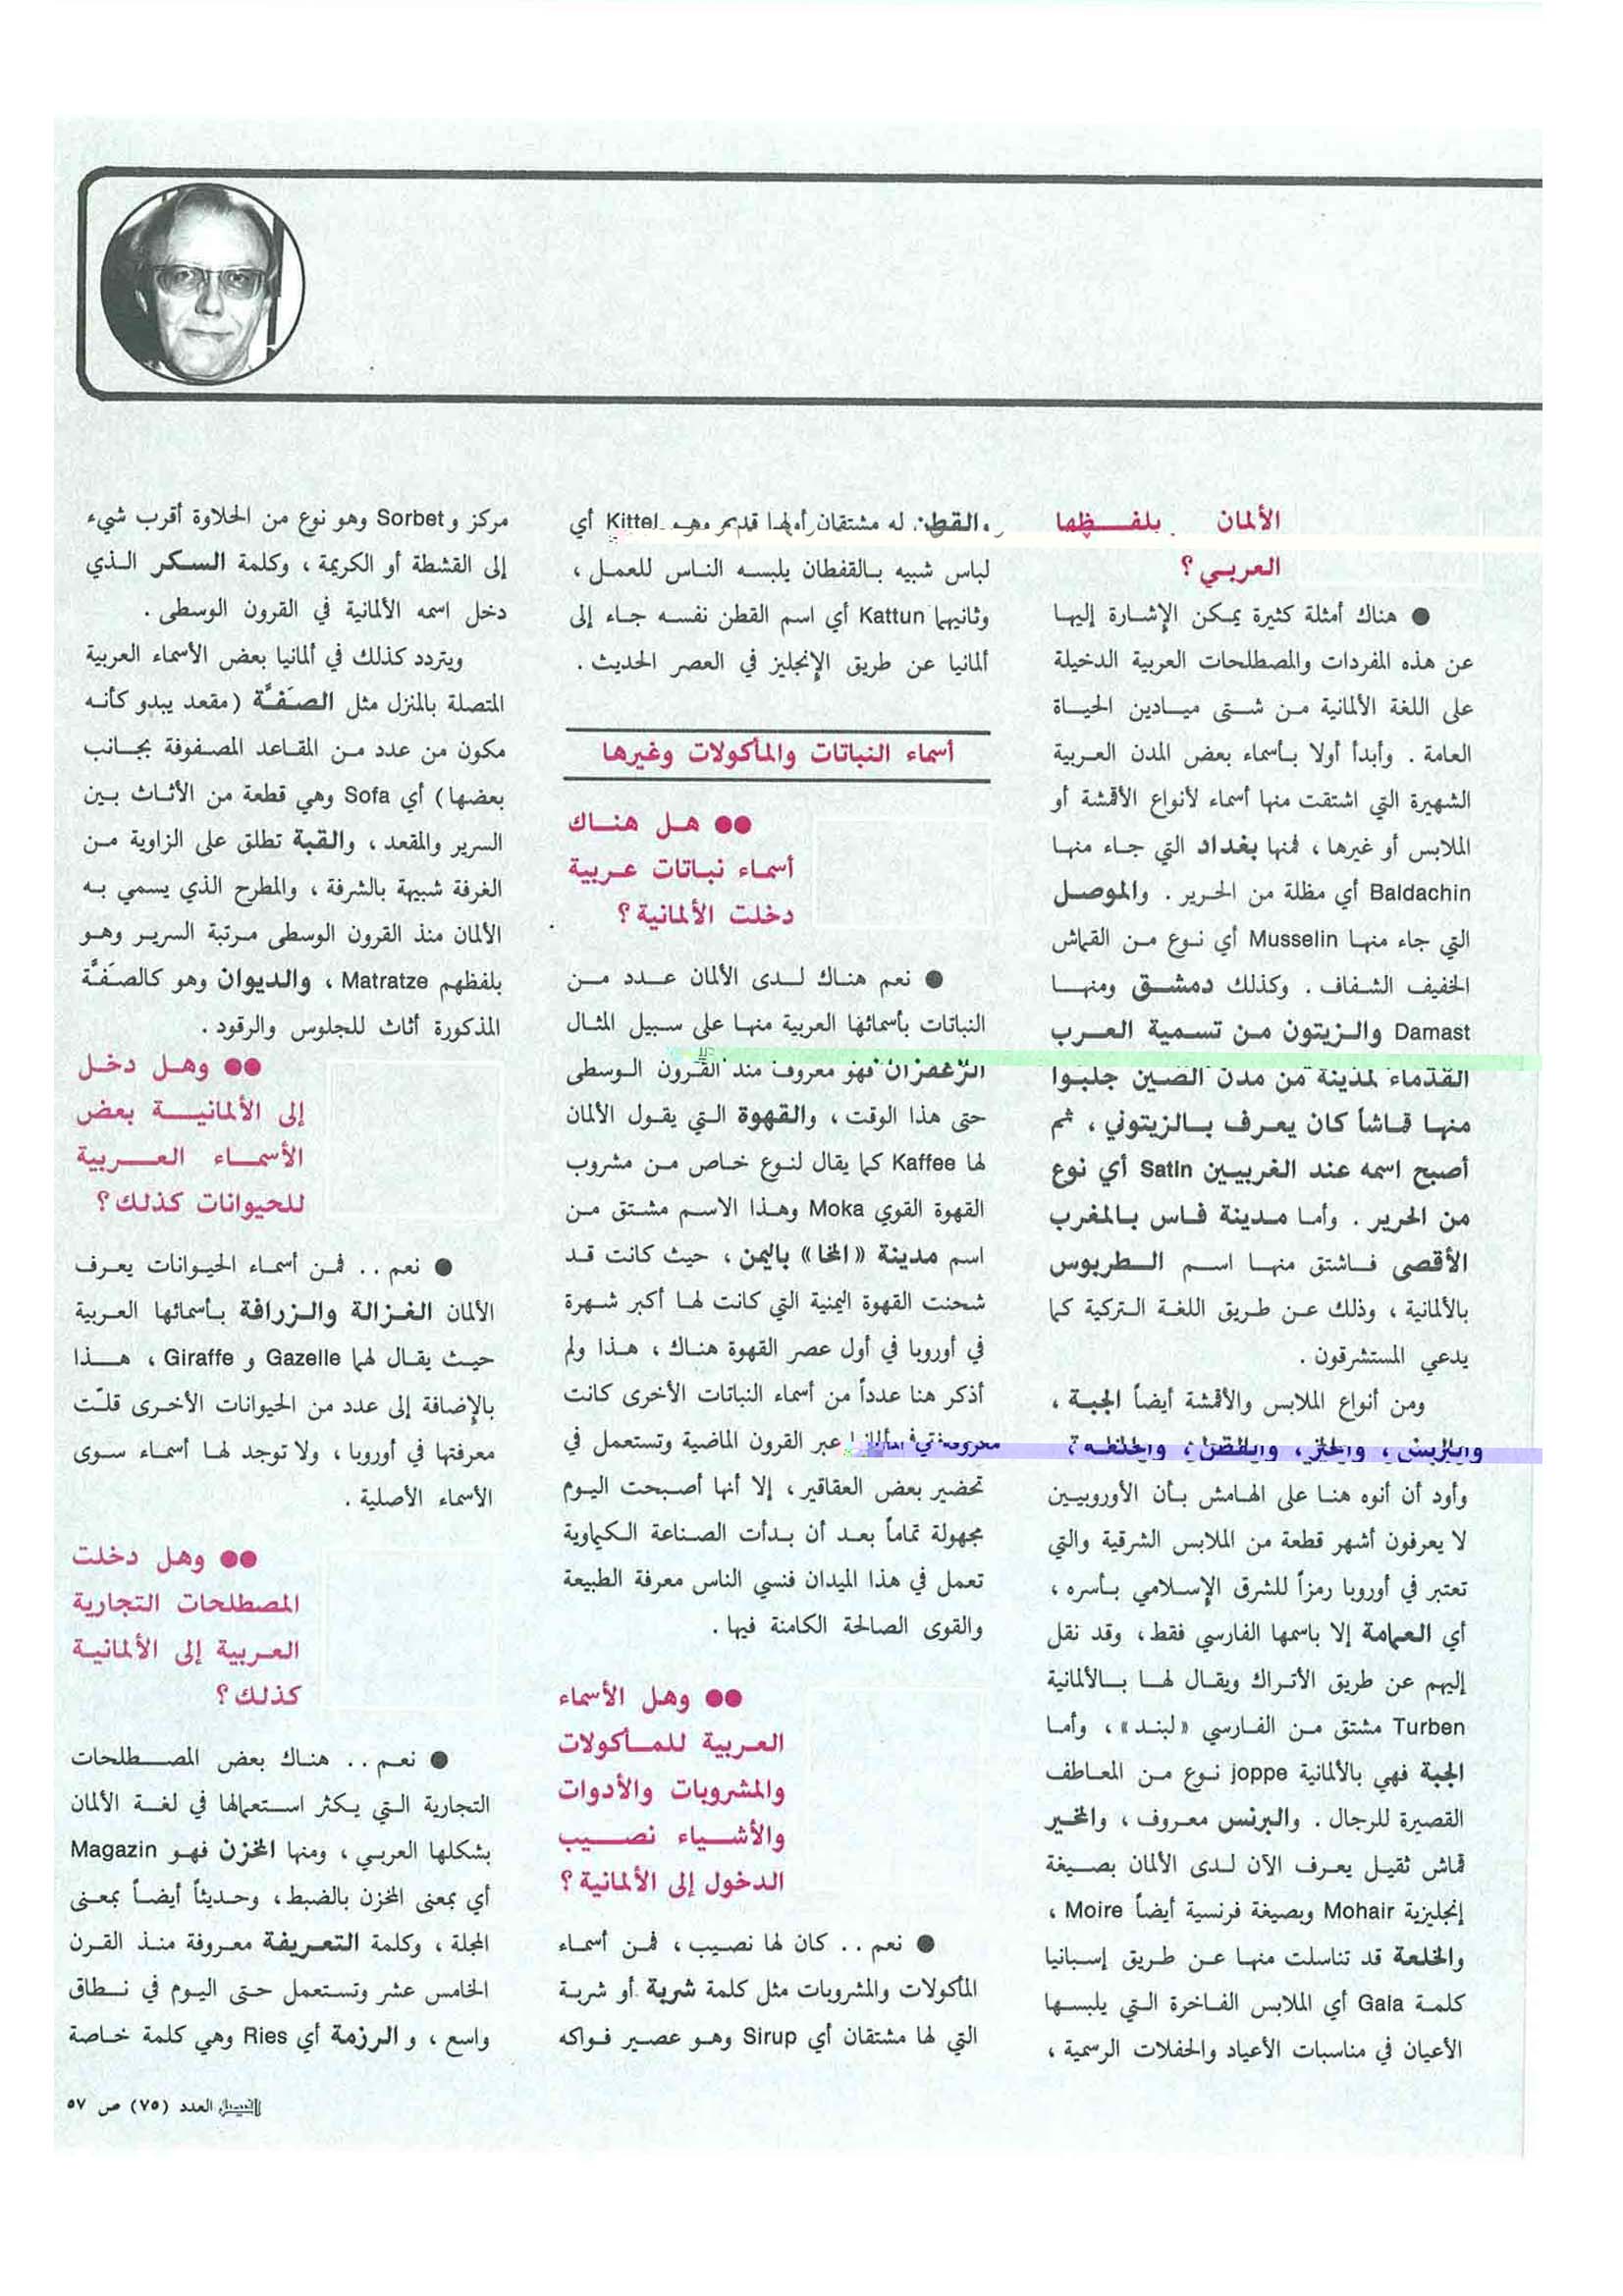 الألمان بلفظها
العربي ؟
● هناك أمثلة كثيرة يمكن الإشارة إليها
عن هذه المفردات والمصطلحات العربية الدخيلة
على اللغة الألمانية من شتى ميادين الحياة
العامة . وأبدأ أولا بأسماء بعض المدن العربية
الشهيرة التي اشتقت منها أسماء لأنواع الأقمشة أو
الملابس أو غيرها ، فمنها بغداد التي جاء منها
Baldachin أي مظلة من الحرير . والموصل
التي جاء منها Musselin أي نوع من القماش
الخفيف الشفاف . وكذلك دمشق ومنها
Damast والزيتون من تسمية العرب
القدماء لمدينة من مدن الصين جلبوا
منها قماشاً كان يعرف بالزيتوني ، ثم
أصبح اسمه عند الغربيين Satin أي نوع
من الحرير . وأما مدينة فاس بالمغرب
الأقصى فاشتق منها اسم الطربوس
بالألمانية ، وذلك عن طريق اللغة التركية كما
يدعي المستشرقون .
ومن أنواع الملابس والأقمشة أيضاً الجبة ،
والخلعة ؛
وأود أن أنوه هنا على الهامش بأن الأوروبيين
لا يعرفون أشهر قطعة من الملابس الشرقية والتي
تعتبر في أوروبا رمزاً للشرق الإسلامي بأسره ،
أي العمامة إلا باسمها الفارسي فقط ، وقد نقل
إليهم عن طريق الأتراك ويقال لها بالألمانية
Turben مشتق من الفارسي «لبند» ، وأما
الجبة فهي بالألمانية joppe نوع من المعاطف
القصيرة للرجال . والبرنس معروف ، والمخير
قماش ثقيل يعرف الآن لدى الألمان بصيغة
إنجليزية Mohair وبصيغة فرنسية أيضاً Moire ،
والخلعة قد تناسلت منها عن طريق إسبانيا
كلمة Gala أي الملابس الفاخرة التي يلبسها
الأعيان في مناسبات الأعياد والحفلات الرسمية ،
والقطن له مشتقان أولهما قديم وهو Kittel أي
لباس شبيه بالقفطان يلبسه الناس للعمل ،
وثانيهما Kattun أي اسم القطن نفسه جاء إلى
ألمانيا عن طريق الإنجليز في العصر الحديث .
أسماء النباتات والمأكولات وغيرها
●● هل هناك
أسماء نباتات عربية
دخلت الألمانية ؟
● نعم هناك لدى الألمان عدد من
النباتات بأسمائها العربية منها على سبيل المثال
الزعفران فهو معروف منذ القرون الوسطى
حتى هذا الوقت ، والقهوة التي يقول الألمان
لها Kaffee كما يقال لنوع خاص من مشروب
القهوة القوي Moka وهذا الاسم مشتق من
اسم مدينة «المخا» باليمن ، حيث كانت قد
شحنت القهوة اليمنية التي كانت لها أكبر شهرة
في أوروبا في أول عصر القهوة هناك ، هذا ولم
أذكر هنا عدداً من أسماء النباتات الأخرى كانت
معروفة في ألمانيا عبر القرون الماضية وتستعمل في
تحضير بعض العقاقير ، إلا أنها أصبحت اليوم
مجهولة تماماً بعد أن بدأت الصناعة الكيماوية
تعمل في هذا الميدان فنسي الناس معرفة الطبيعة
والقوى الصالحة الكامنة فيها .
●● وهل الأسماء
العربية للمأكولات
والمشروبات والأدوات
والأشياء نصيب
الدخول إلى الألمانية ؟
● نعم .. كان لها نصيب ، فمن أسماء
المأكولات والمشروبات مثل كلمة شربة أو شربة
التي لها مشتقان أي Sirup وهو عصير فواكه
مركز وSorbet وهو نوع من الحلاوة أقرب شيء
إلى القشطة أو الكريمة ، وكلمة السكر الذي
دخل اسمه الألمانية في القرون الوسطى .
ويتردد كذلك في ألمانيا بعض الأسماء العربية
المتصلة بالمنزل مثل الصَفَّة (مقعد يبدو كأنه
مكون من عدد من المقاعد المصفوفة بجانب
بعضها) أي Sofa وهي قطعة من الأثاث بين
السرير والمقعد ، والقبة تطلق على الزاوية من
الغرفة شبيهة بالشرفة ، والمطرح الذي يسمي به
الألمان منذ القرون الوسطى مرتبة السرير وهو
بلفظهم Matratze ، والديوان وهو كالصَفَّة
المذكورة أثاث للجلوس والرقود .
●● وهل دخل
إلى الألمانية بعض
الأسماء العربية
للحيوانات كذلك ؟
● نعم .. فمن أسماء الحيوانات يعرف
الألمان الغزالة والزرافة بأسمائها العربية
حيث يقال لهما Gazelle و Giraffe ، هذا
بالإضافة إلى عدد من الحيوانات الأخرى قلّت
معرفتها في أوروبا ، ولا توجد لها أسماء سوى
الأسماء الأصلية .
●● وهل دخلت
المصطلحات التجارية
العربية إلى الألمانية
كذلك ؟
● نعم .. هناك بعض المصطلحات
التجارية التي يكثر استعمالها في لغة الألمان
بشكلها العربي ، ومنها المخزن فهو Magazin
أي بمعنى المخزن بالضبط ، وحديثاً أيضاً بمعنى
المجلة ، وكلمة التعريفة معروفة منذ القرن
الخامس عشر وتستعمل حتى اليوم في نطاق
واسع ، و الرزمة أي Ries وهي كلمة خاصة
الفيصل العدد (٧٥) ص ٥٧